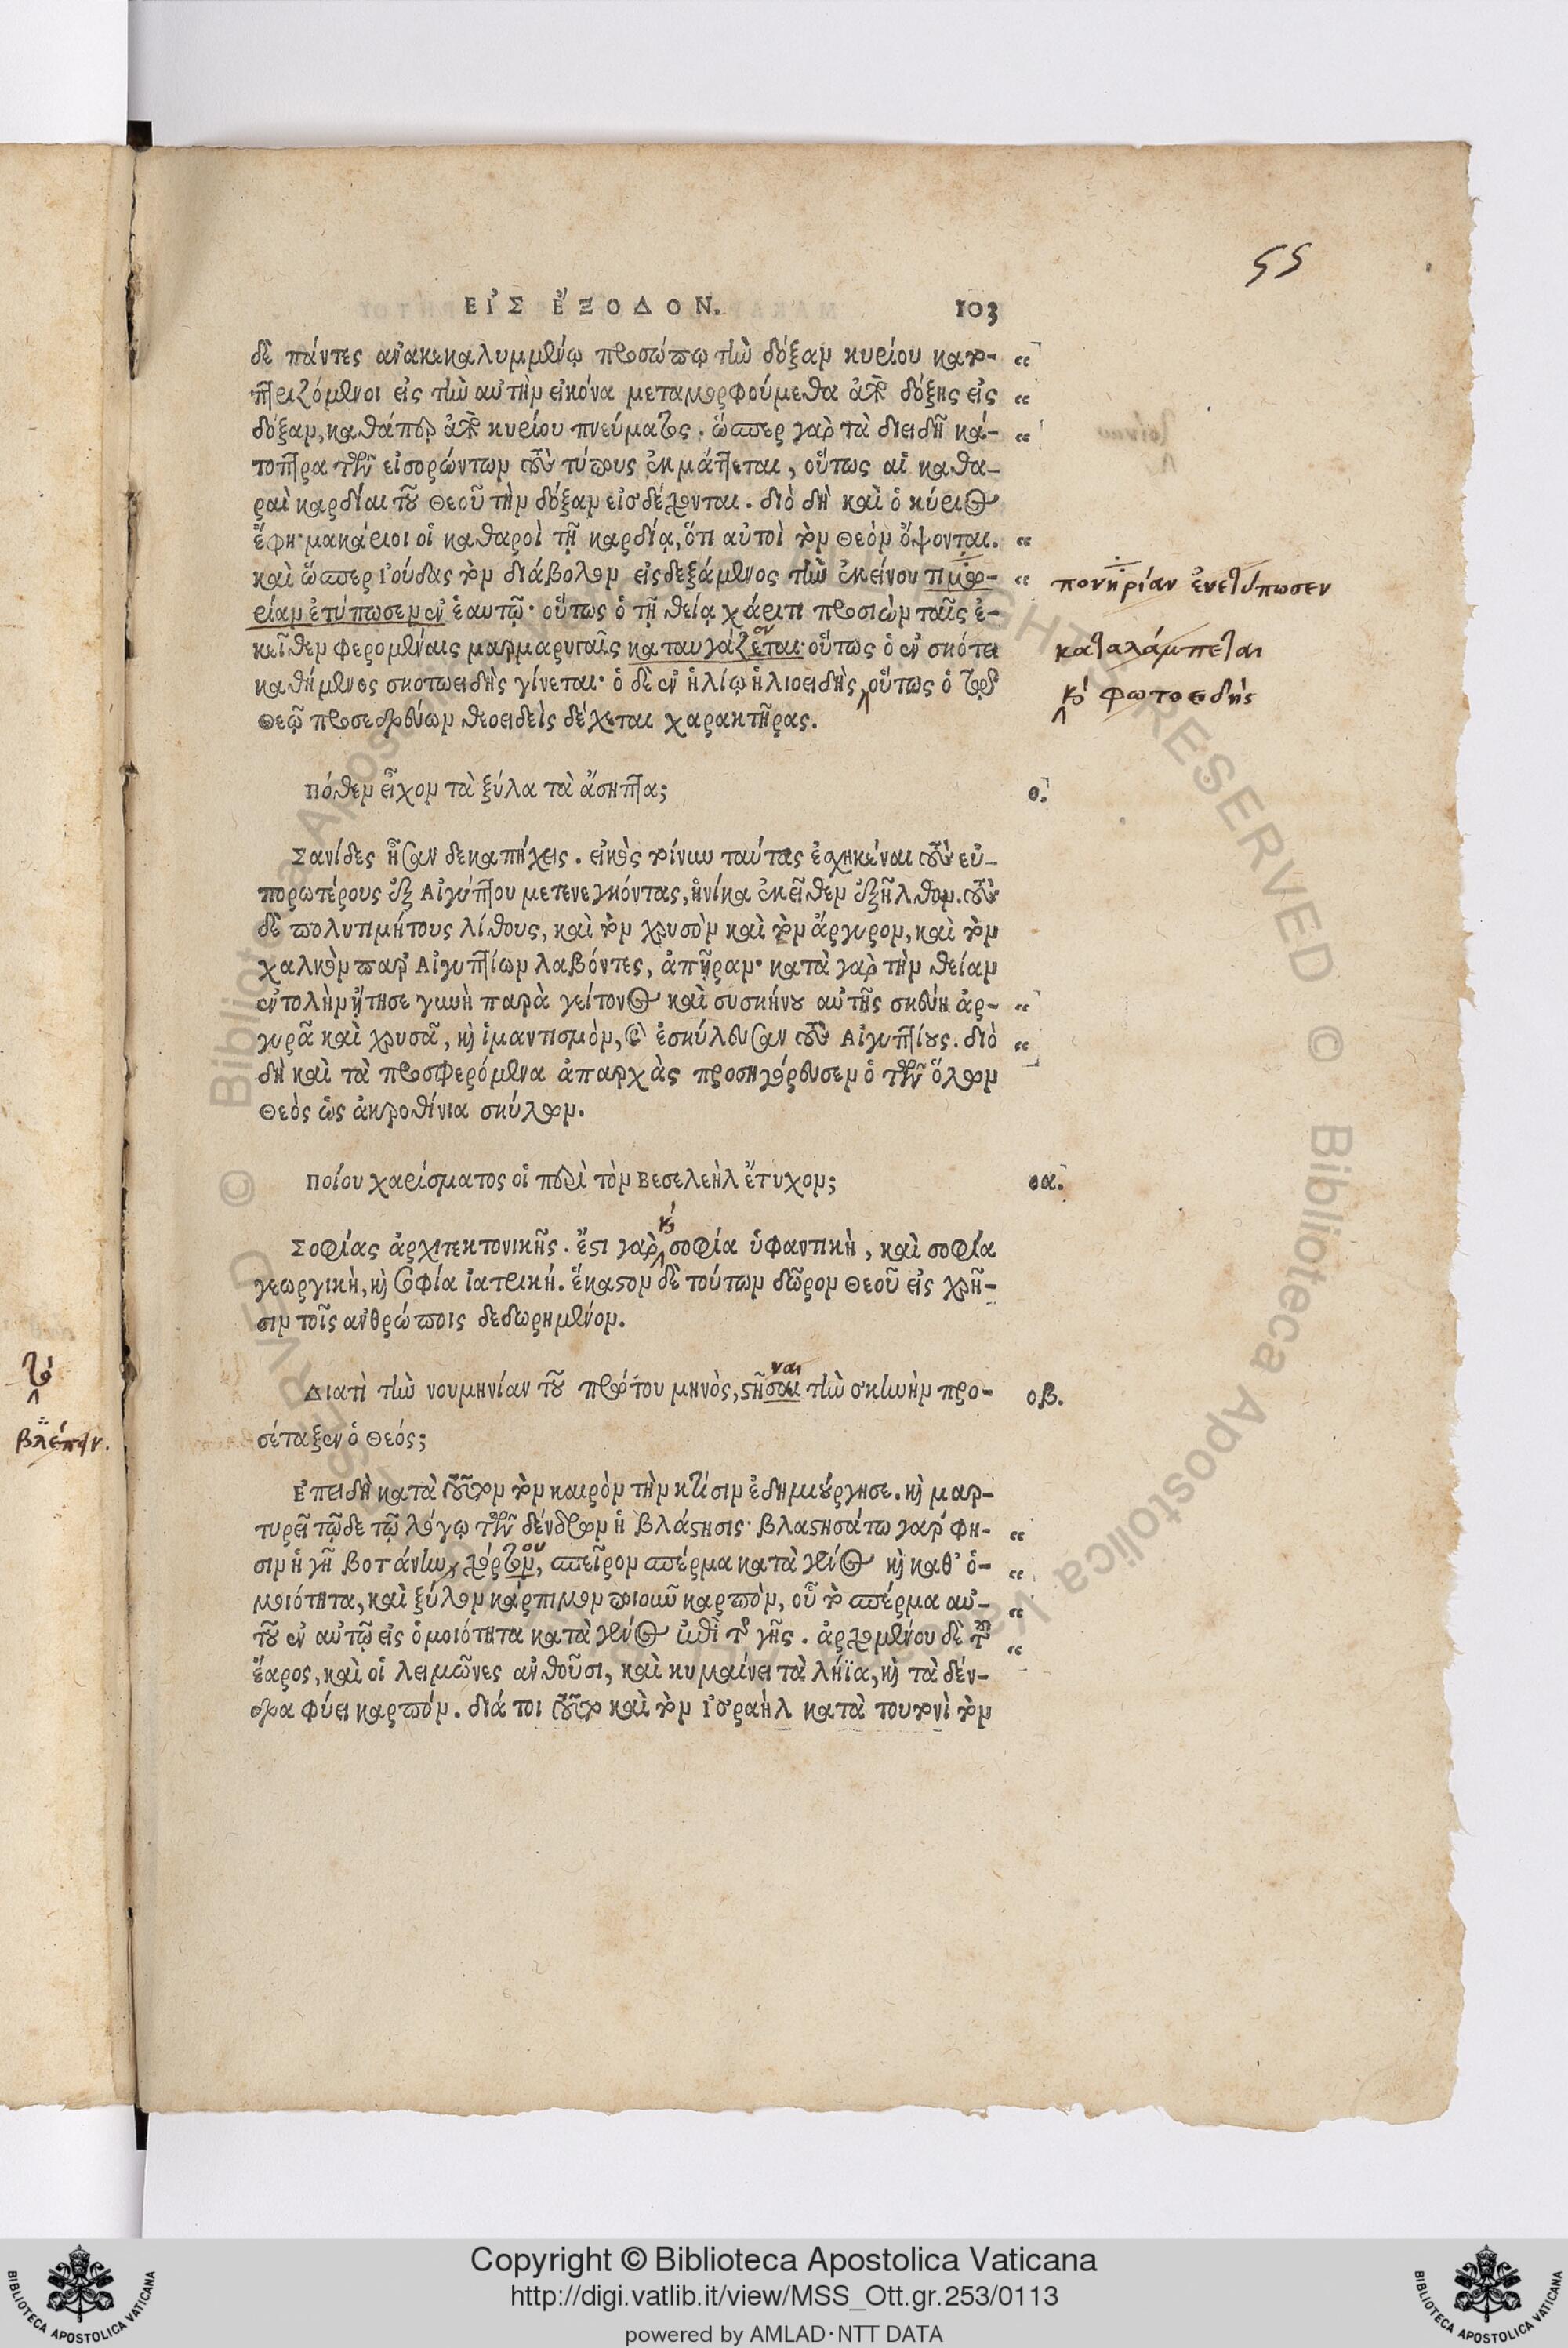 55
ΕἸΣ ἜΞΟΔΟΝ. 103
δὲ πάντες ἀνακεκαλυμμένῳ προσώπῳ τὴν δόξαν κυρίου κατο- “
πτριζόμενοι εἰς τὴν αὐτὴν εἰκόνα μεταμορφούμεθα ἀπὸ δόξης εἰς “
δόξαν, καθάπερ ἀπὸ κυρίου πνεύματος. ὥσπερ γὰρ τὰ διειδῆ κά- “
τοπτρα τῶν εἰσορώντων τοὺς τύπους ἐκμάττεται, οὕτως αἱ καθα-
ραὶ καρδίαι τοῦ Θεοῦ τὴν δόξαν εἰσδέχονται. διὸ δὴ καὶ ὁ κύριος
ἔφη· μακάριοι οἱ καθαροὶ τῇ καρδίᾳ, ὅτι αὐτοὶ τὸν Θεὸν ὄψονται. “
καὶ ὥσπερ Ἰούδας τὸν διάβολον εἰσδεξάμενος τὴν ἐκείνου τιμω- “ πονηρίαν ἐνετύπωσεν
ρίαν ἐτύπωσεν ἐν ἑαυτῷ· οὕτως ὁ τῇ θείᾳ χάριτι προσιὼν ταῖς ἐ-
κεῖθεν φερομέναις μαρμαρυγαῖς καταυγάζεται· οὕτως ὁ ἐν σκότει καταλάμπεται
καθήμενος σκοτωειδὴς γίνεται· ὁ δὲ ἐν ἡλίῳ ἡλιοειδὴς, οὕτως ὁ τῷ κὴ φωτοειδής
Θεῷ προσεδρεύων θεοειδεῖς δέχεται χαρακτῆρας.
Πόθεν εἶχον τὰ ξύλα τὰ ἄσηπτα; ο.
Σανίδες ἦσαν δεκαπήχεις. εἰκὸς τοίνυν ταύτας ἐσχηκέναι τοὺς εὐ-
πορωτέρους ἐξ Αἰγύπτου μετενεγκόντας, ἡνίκα ἐκεῖθεν ἐξῆλθον. τοὺς
δὲ πολυτιμήτους λίθους, καὶ τὸν χρυσὸν καὶ τὸν ἄργυρον, καὶ τὸν
χαλκὸν παρ' Αἰγυπτίων λαβόντες, ἀπῆραν· κατὰ γὰρ τὴν θείαν
ἐντολὴν ᾔτησε γυνὴ παρὰ γείτονος καὶ συσκήνου αὐτῆς σκεύη ἀρ- “
γυρᾶ καὶ χρυσᾶ, καὶ ἱματισμὸν, καὶ ἐσκύλευσαν τοὺς Αἰγυπτίους. διὸ “
δὴ καὶ τὰ προσφερόμενα ἀπαρχὰς προσηγόρευσεν ὁ τῶν ὅλων
Θεὸς ὡς ἀκροθίνια σκύλων.
Ποίου χαρίσματος οἱ περὶ τὸν Βεσελεὴλ ἔτυχον; οα.
κὴ
Σοφίας ἀρχιτεκτονικῆς. ἔστι γὰρ σοφία ὑφαντικὴ, καὶ σοφία
γεωργικὴ, καὶ σοφία ἰατρική. ἕκαστον δὲ τούτων δῶρον Θεοῦ εἰς χρῆ-
σιν τοῖς ἀνθρώποις δεδωρημένον.
ναι
Διατὶ τὴν νουμηνίαν τοῦ πρώτου μηνὸς, στῆσαι τὴν σκηνὴν προ- οβ.
σέταξεν ὁ Θεός;
βλέπειν.
Ἐπειδὴ κατὰ τοῦτον τὸν καιρὸν τὴν κτίσιν ἐδημιούργησε. καὶ μαρ-
τυρεῖ τῷδε τῷ λόγῳ τῶν δένδρων ἡ βλάστησις· βλαστησάτω γάρ φη- “
ου
σιν ἡ γῆ βοτάνην χόρτον, σπεῖρον σπέρμα κατὰ γένος καὶ καθ' ὁ- “
μοιότητα, καὶ ξύλον κάρπιμον ποιοῦν καρπὸν, οὗ τὸ σπέρμα αὐ- “
τοῦ ἐν αὐτῷ εἰς ὁμοιότητα κατὰ γένος ἐπὶ τῆς γῆς. ἀρχομένου δὲ τοῦ “
ἔαρος, καὶ οἱ λειμῶνες ἀνθοῦσι, καὶ κυμαίνει τὰ λήϊα, καὶ τὰ δέν-
δρα φύει καρπόν. διά τοι τοῦτο καὶ τὸν Ἰσραὴλ κατὰ τουτονὶ τὸν
Copyright © Biblioteca Apostolica Vaticana
http://digi.vatlib.it/view/MSS_Ott.gr.253/0113
powered by AMLAD·NTT DATA
BIBLIOTECA APOSTOLICA VATICANA
BIBLIOTECA APOSTOLICA VATICANA